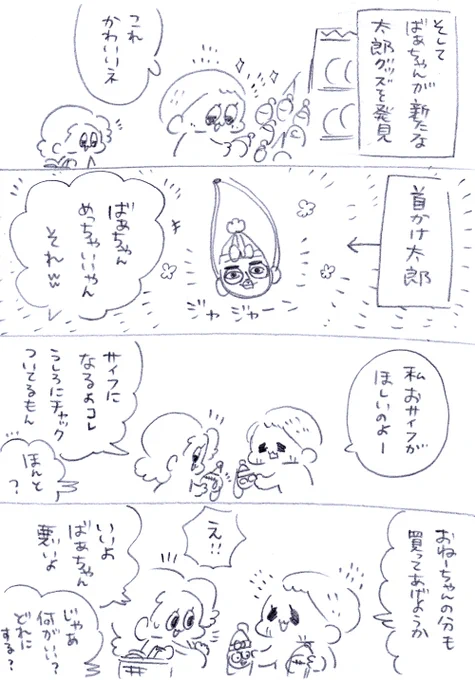 そして
ばぁちゃんが新たな
太郎グッズを発見
これ
かわいいネ
首かけ太郎
ジャジャーー
ばぁちゃん
めっちゃいいやん
それww
私おサイフが
ほしいのよー
サイフに
なるよコレ
うしろにチャック
ついてるもん
ほんと
?
おねーちゃんの分も
買ってあげようか
え!!
いいよ
ばぁちゃん
悪いよ
じゃあ
何がいい?
どれに
する?